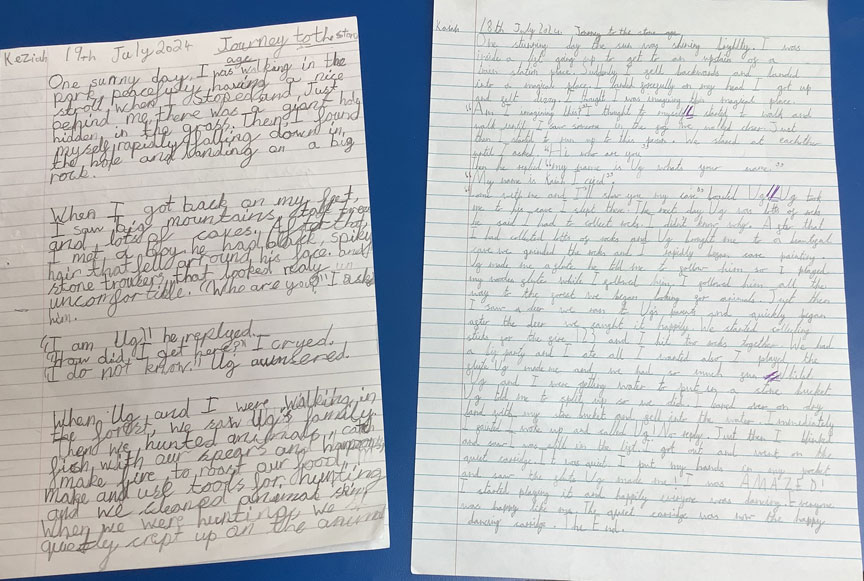 Keziah 19th July 2024 Journey to the stone
age
One sunny day, I was walking in the
park peacefully, having a nice
stroll, when I stoped and just
behind me, there was a giant hole
hidden in the grass. Then, I found
myself rapidly falling down in
the hole and landing on a big
rock.
When I got back on my feet,
I saw big mountains, tall trees
and lots of caves. After that,
I met a boy, he had black, spiky
hair that fell around his face. and
stone trousers that looked realy
uncomfortable. "Who are you?" I asked
him.
"I am Ug" he replyed.
"How did I get here?" I cryed.
"I do not know." Ug aunsered.
When Ug and I were walking in
the forest, we saw Ug's family
then we hunted animals, catch
fish with our spears and
make fire to roast our food
make and use tools for hunting
and we cleaned animal skin
When we were hunting, we
quietly crept up on the
18th July 2024 Journey to the stone age
One day the sun was shining brightly. I was
inside a lift going up to get to an upstairs of a
station place. I fell backwards and landed
into a magical place. I landed forcefully on my head. I got up
and felt dizzy. I thought I was imagining this magical place.
"Am I imagining this" I thought to myself. I started to walk and
walk I saw someone in the fog we walked closer. Just
then I started to run up to this person. We stared at eachother
until I asked "Hi who are you"
Then he replied "my name is Ug whats your name"
"My name is I cryed"
with me and I'll show you my cave" Ug Ug took
me to his cave I slept there. The next day Ug was lots of rocks
he said I had to collect rocks. I didn't know why. After that
I had collected lots of rocks and Ug brought me to a beautiful
cave we grinded the rocks and I rapidly began cave painting.
Ug made me a flute he told me to follow him so I played
my wooden flute while I followed him. I followed him all the
way to the forest we began looking for animals. Just then
I saw a deer we ran to Ug's parents and quickly began
after the deer we caught it happily. We started collecting
sticks for the fire and I hit two rocks together We had
a party and I ate all I wanted also I played the
flute Ug made me and we had so much fun
Ug and I were getting water to put in a stone bucket
Ug told me to split up so we did I over on dry
land with my stone bucket and fell into the water. I immediately
I woke up and called Ug! No reply. Just then I blinked
and saw I was still in the lift I got out and went on the
quiet carridge. It was quiet I put my hands in my pocket
and saw the flute Ug made me! I was AMAZED!
I started playing it and happily everyone was dancing. Everyone
was happy like me. The quiet carridge was now the happy
dancing carridge. The End.